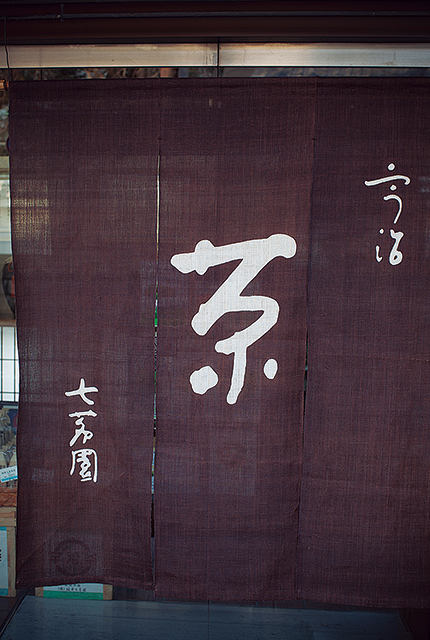 宇治
茶
七茗園